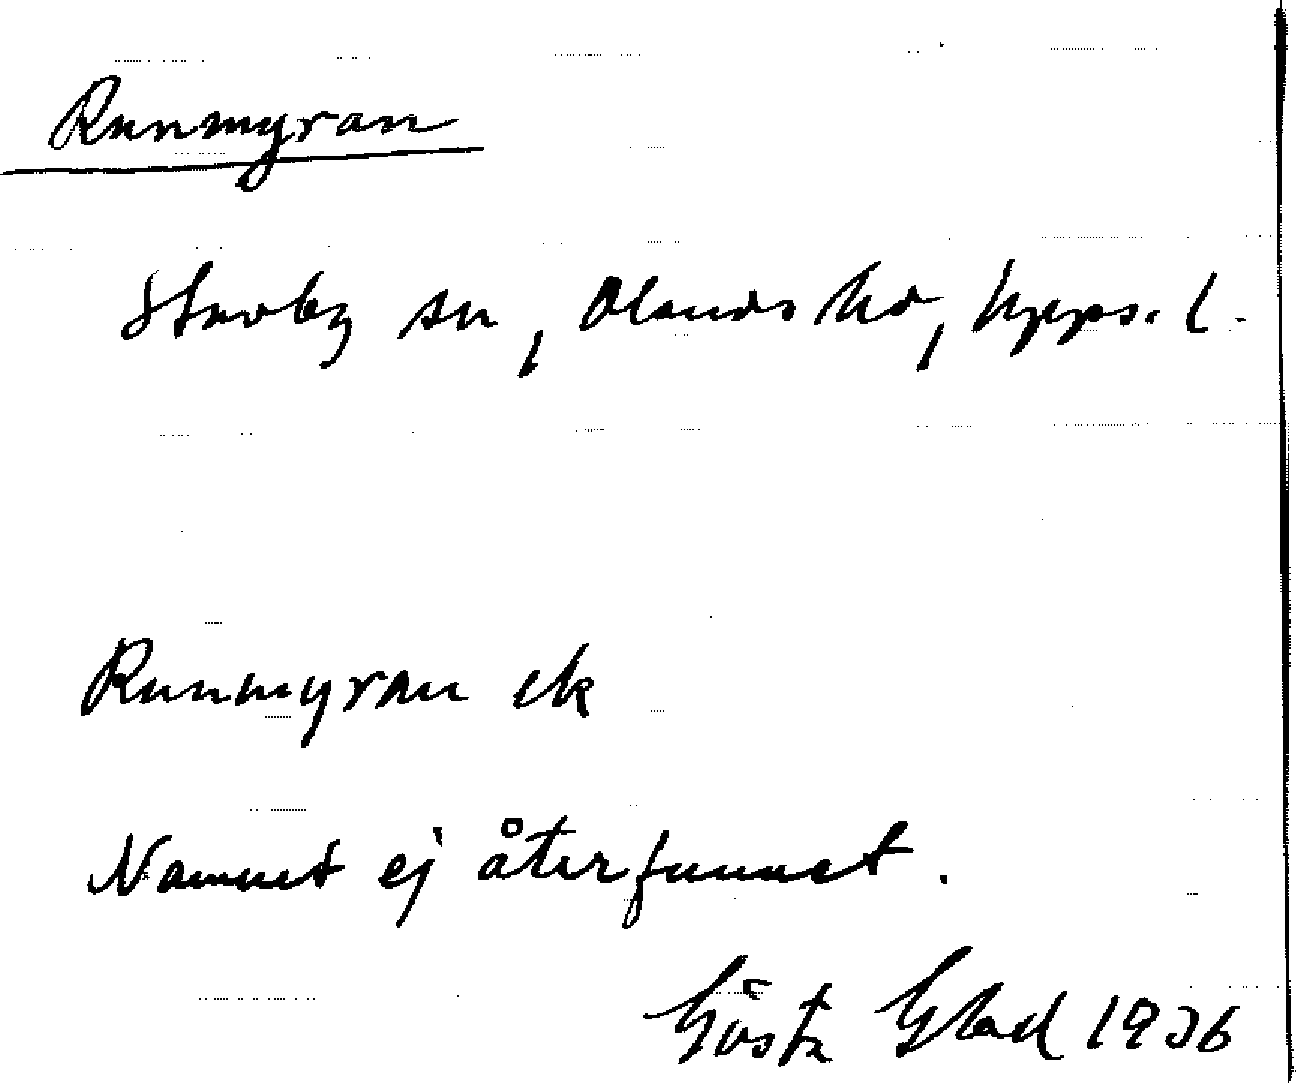 Runmyran
Stavby sn, Olands hd, Upps. l.
Runmyran ek
Namnet ej återfunnet.
Gösta Glad 1936